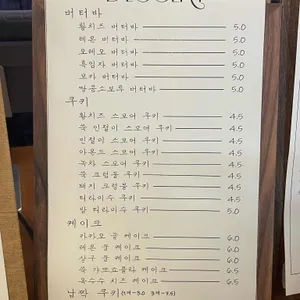 DESSERT
버터바
황치즈 버터바 5.0
레몬 버터바 5.0
오레오 버터바 5.0
흑임자 버터바 5.0
모카 버터바 5.0
땅콩소보루 버터바 5.0
쿠키
황치즈 스모어 쿠키 4.5
쑥 인절미 스모어 쿠키 4.5
인절미 스모어 쿠키 4.5
아몬드 스모어 쿠키 4.5
녹차 스모어 쿠키 4.5
쑥 크럼블 쿠키 4.5
돼지 크럼블 쿠키 4.5
티라미수 쿠키 4.5
밤 티라미수 쿠키 5.0
케이크
카카오 쿨 케이크 6.0
레몬 쿨 케이크 6.0
살구 쿨 케이크 6.0
쑥 가또쇼콜라 케이크 6.5
옥수수 치즈 케이크 6.5
납짝 쿠키